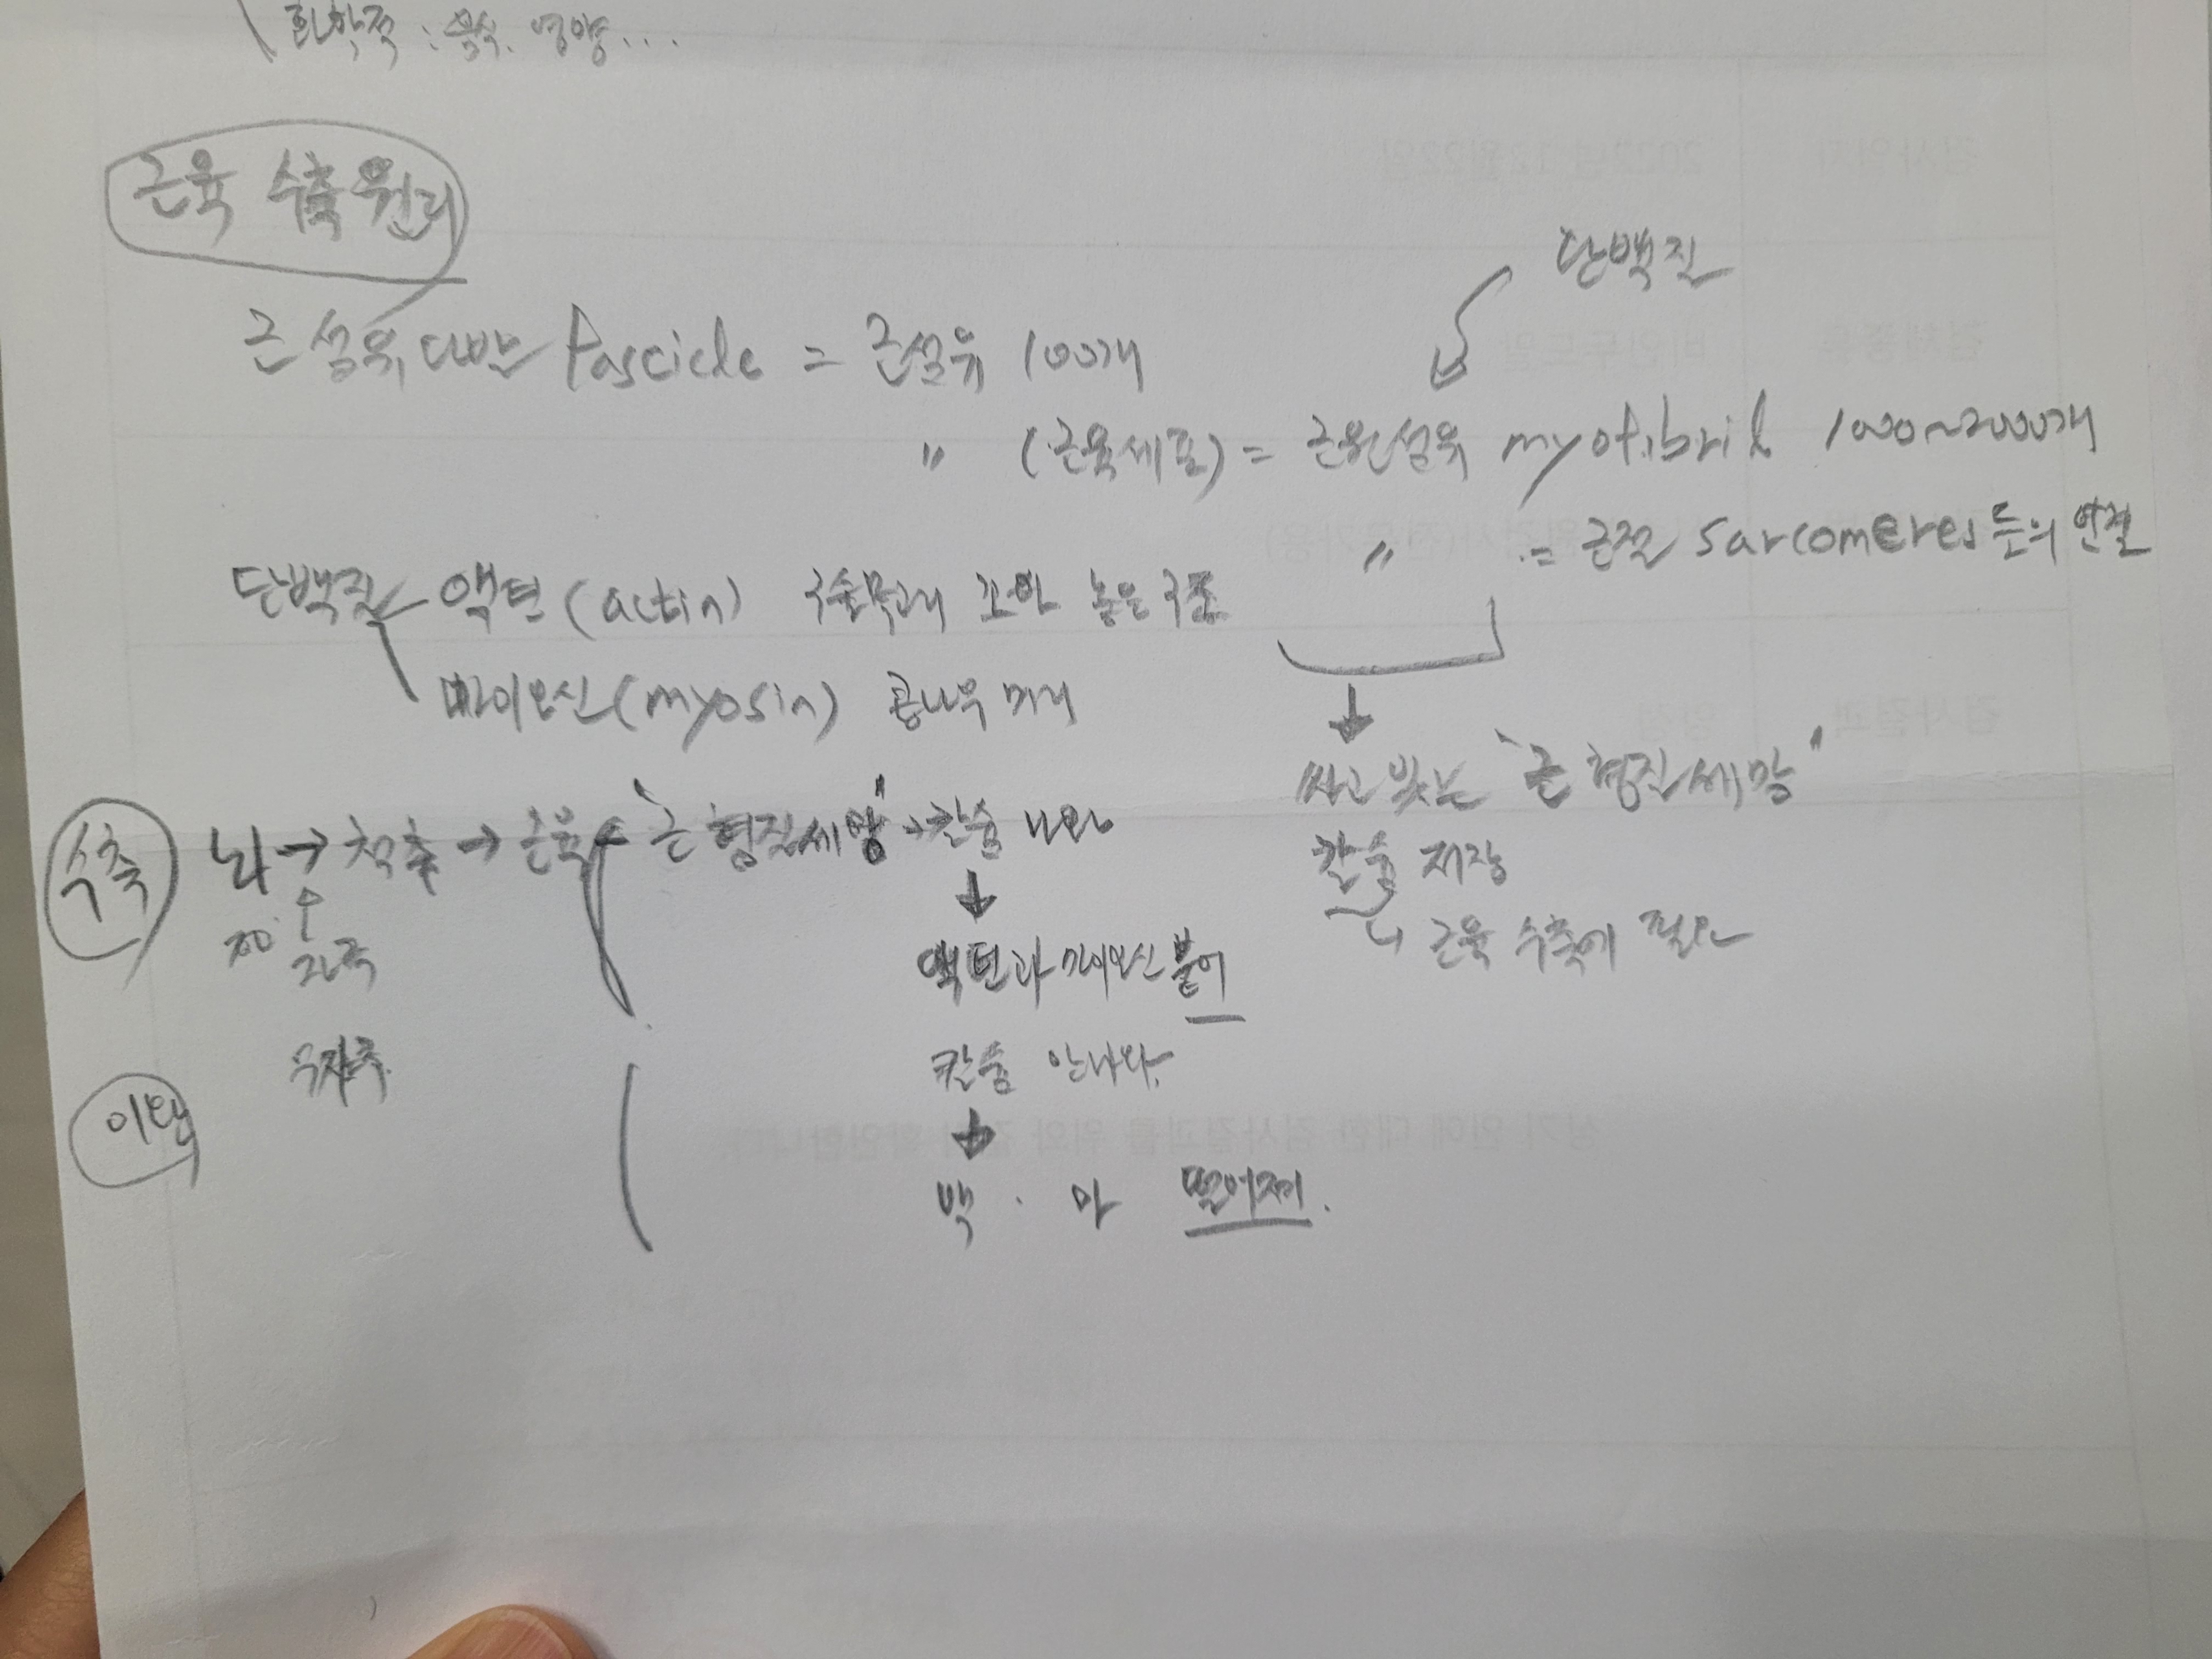 화학적 : 음식. 영양...
근육 수축 원리
단백질
근섬유 다발 Fascicle = 근섬유 100개
" (근육세포) = 근원섬유 myofibril 1000~2000개
" = 근절 sarcomeres 들의 연결
단백질 액틴(actin) 구슬목걸이 꼬아 놓은 구조
마이오신(myosin) 콩나물 머리
싸고 있는 "근형질세망"
칼슘 저장
↳ 근육 수축에 필요
수축 뇌 → 척추 → 근육 "근형질세망" → 칼슘 나와
자극
↓
액틴과 마이오신 붙어
이완
칼슘 안나와.
↓
액 · 마 떨어져.